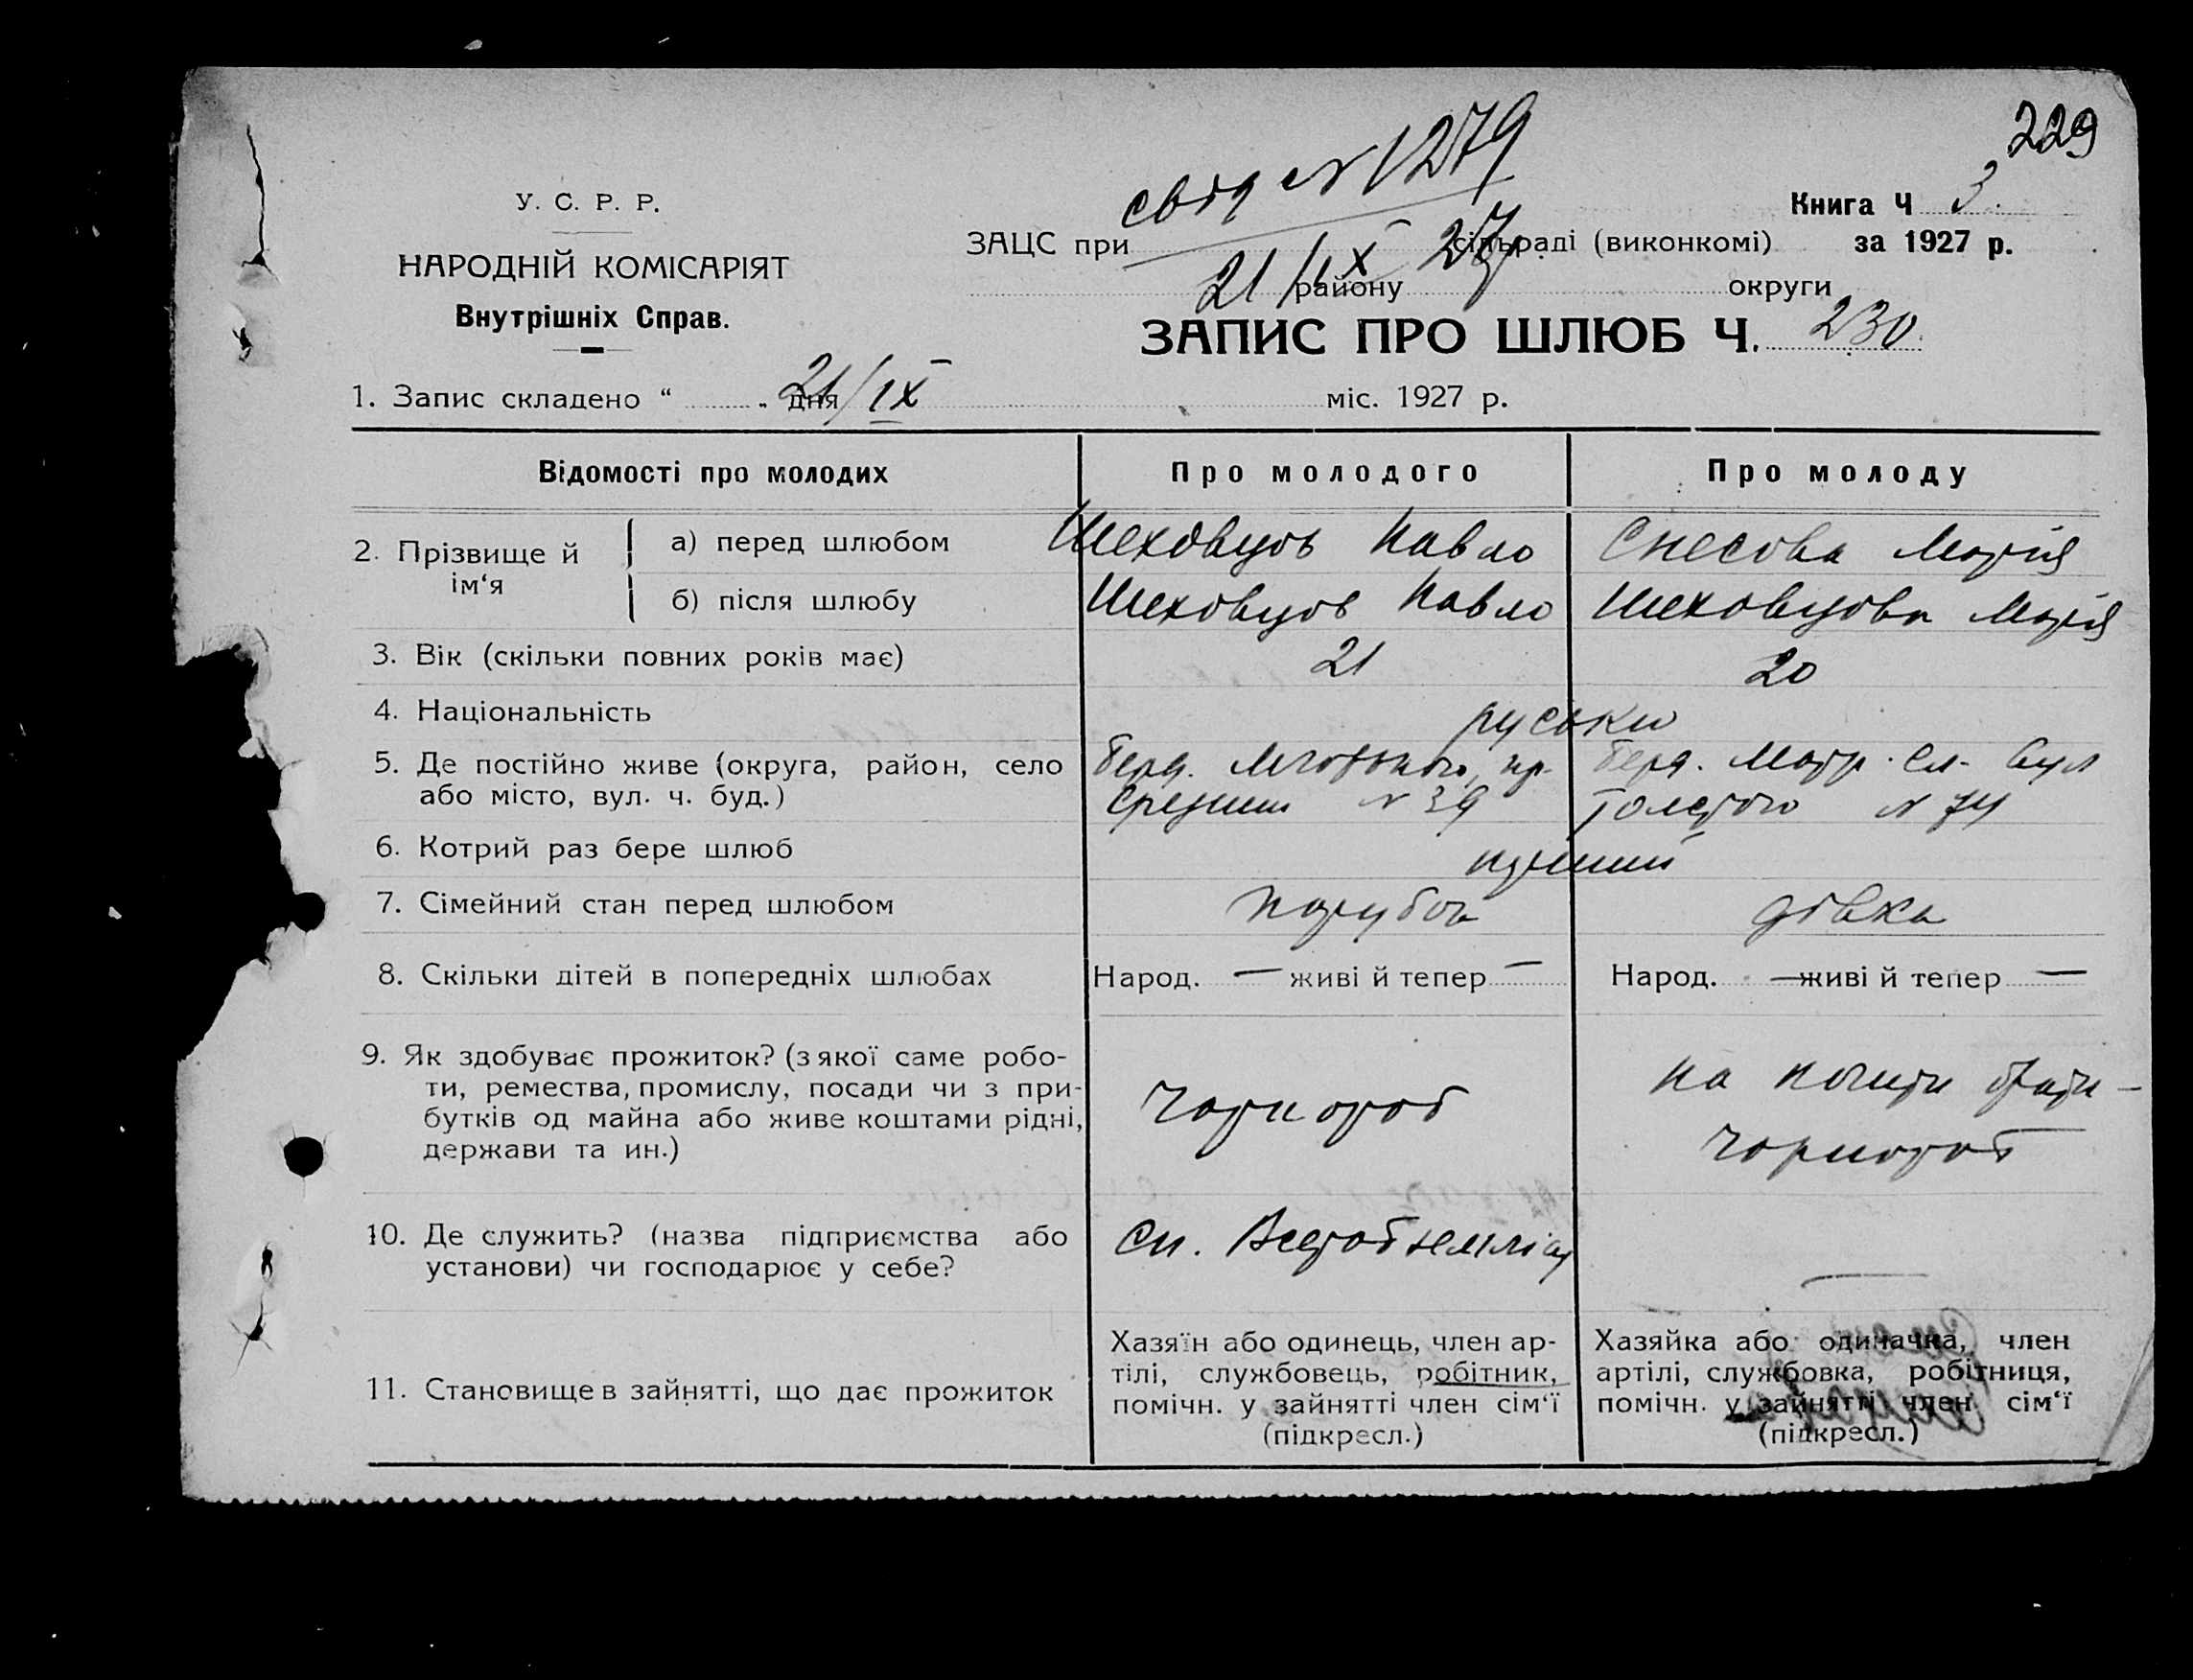 229
свід № 1279
У. С. Р. Р.
Книга Ч 3.
ЗАЦС при сільраді (виконкомі) за 1927 р.
НАРОДНІЙ КОМІСАРІЯТ
21/IX 27р.
району округи
Внутрішніх Справ.
ЗАПИС ПРО ШЛЮБ Ч. 230
1. Запис складено “ „ дня 21/IX міс. 1927 р.
Відомості про молодих Про молодого Про молоду
2. Прізвище й ім‘я
а) перед шлюбом Шеховцов Павло Снесова Марія
б) після шлюбу Шеховцов Павло Шеховцова Марія
3. Вік (скільки повних років має) 21 20
4. Національність руськи
5. Де постійно живе (округа, район, село Берд. Берд. Матр. Сл. вул
або місто, вул. ч. буд.) № 39 Толстого № 74
6. Котрий раз бере шлюб перший
7. Сімейний стан перед шлюбом парубок дівка
8. Скільки дітей в попередніх шлюбах Народ. — живі й тепер — Народ. — живі й тепер —
9. Як здобуває прожиток? (з якої саме робо-
ти, ремества, промислу, посади чи з при-
бутків од майна або живе коштами рідні,
держави та ин.)
Чорнороб
на
чорнороб
10. Де служить? (назва підприємства або
установи) чи господарює у себе?
Сп. Всеробземліс
—
11. Становище в зайнятті, що дає прожиток
Хазяїн або одинець, член ар-
тілі, службовець, робітник,
помічн. у зайнятті член сім‘ї
(підкресл.)
Хазяйка або одиначка, член
артілі, службовка, робітниця,
помічн. у зайнятті член сім‘ї
(підкресл.)